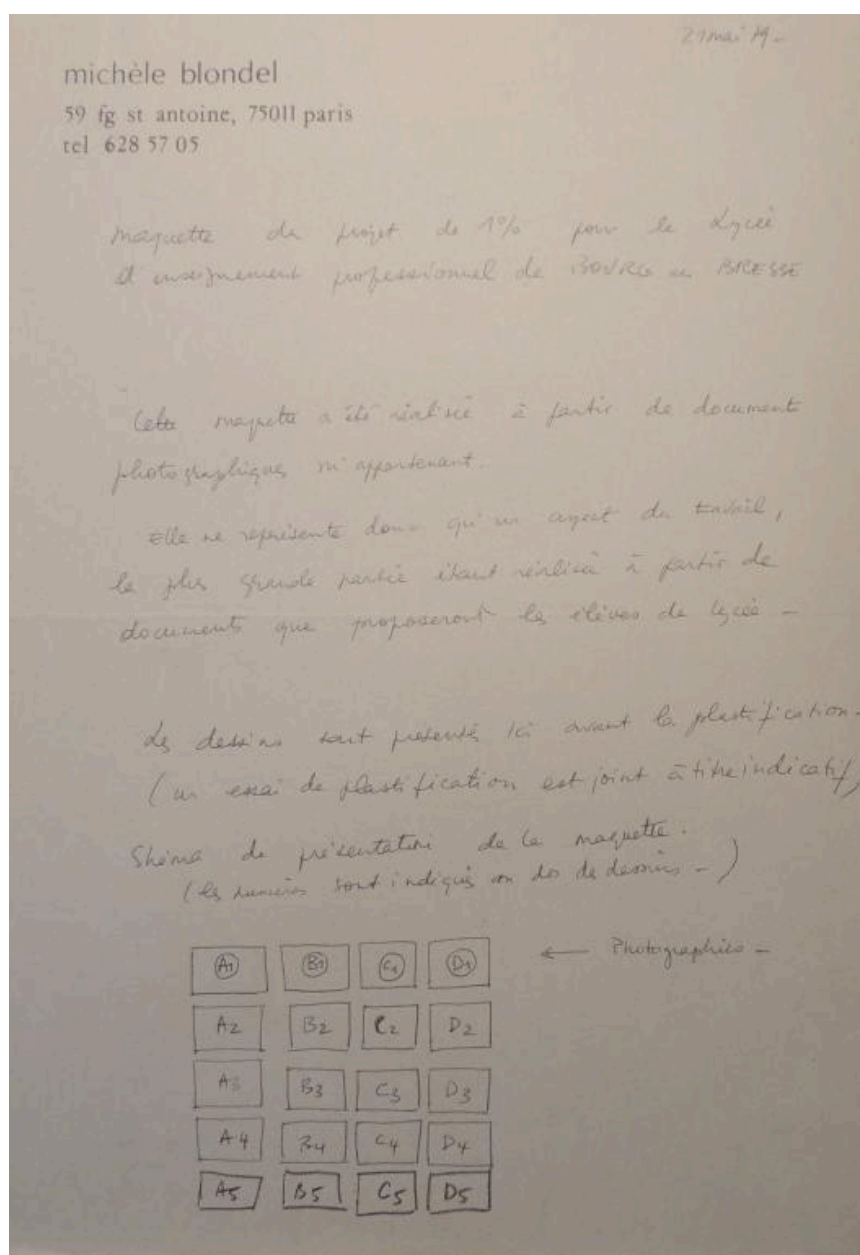 21 mai 79 -
michèle blondel
59 fg st antoine, 75011 paris
tel 628 57 05
maquette du projet de 1% pour le Lycée
d'enseignement professionnel de BOURG en BRESSE
Cette maquette a été réalisée à partir de document
photographiques m'appartenant.
Elle ne représente donc qu'un aspect du travail,
la plus grande partie étant réalisée à partir de
documents que proposeront les élèves du lycée -
Les dessins sont présentés ici avant la plastification -
(un essai de plastification est joint à titre indicatif)
Shéma de présentation de la maquette.
(les numéros sont indiqués au dos des dessins -)
A1 B1 C1 D1 ← Photographies -
A2 B2 C2 D2
A3 B3 C3 D3
A4 B4 C4 D4
A5 B5 C5 D5